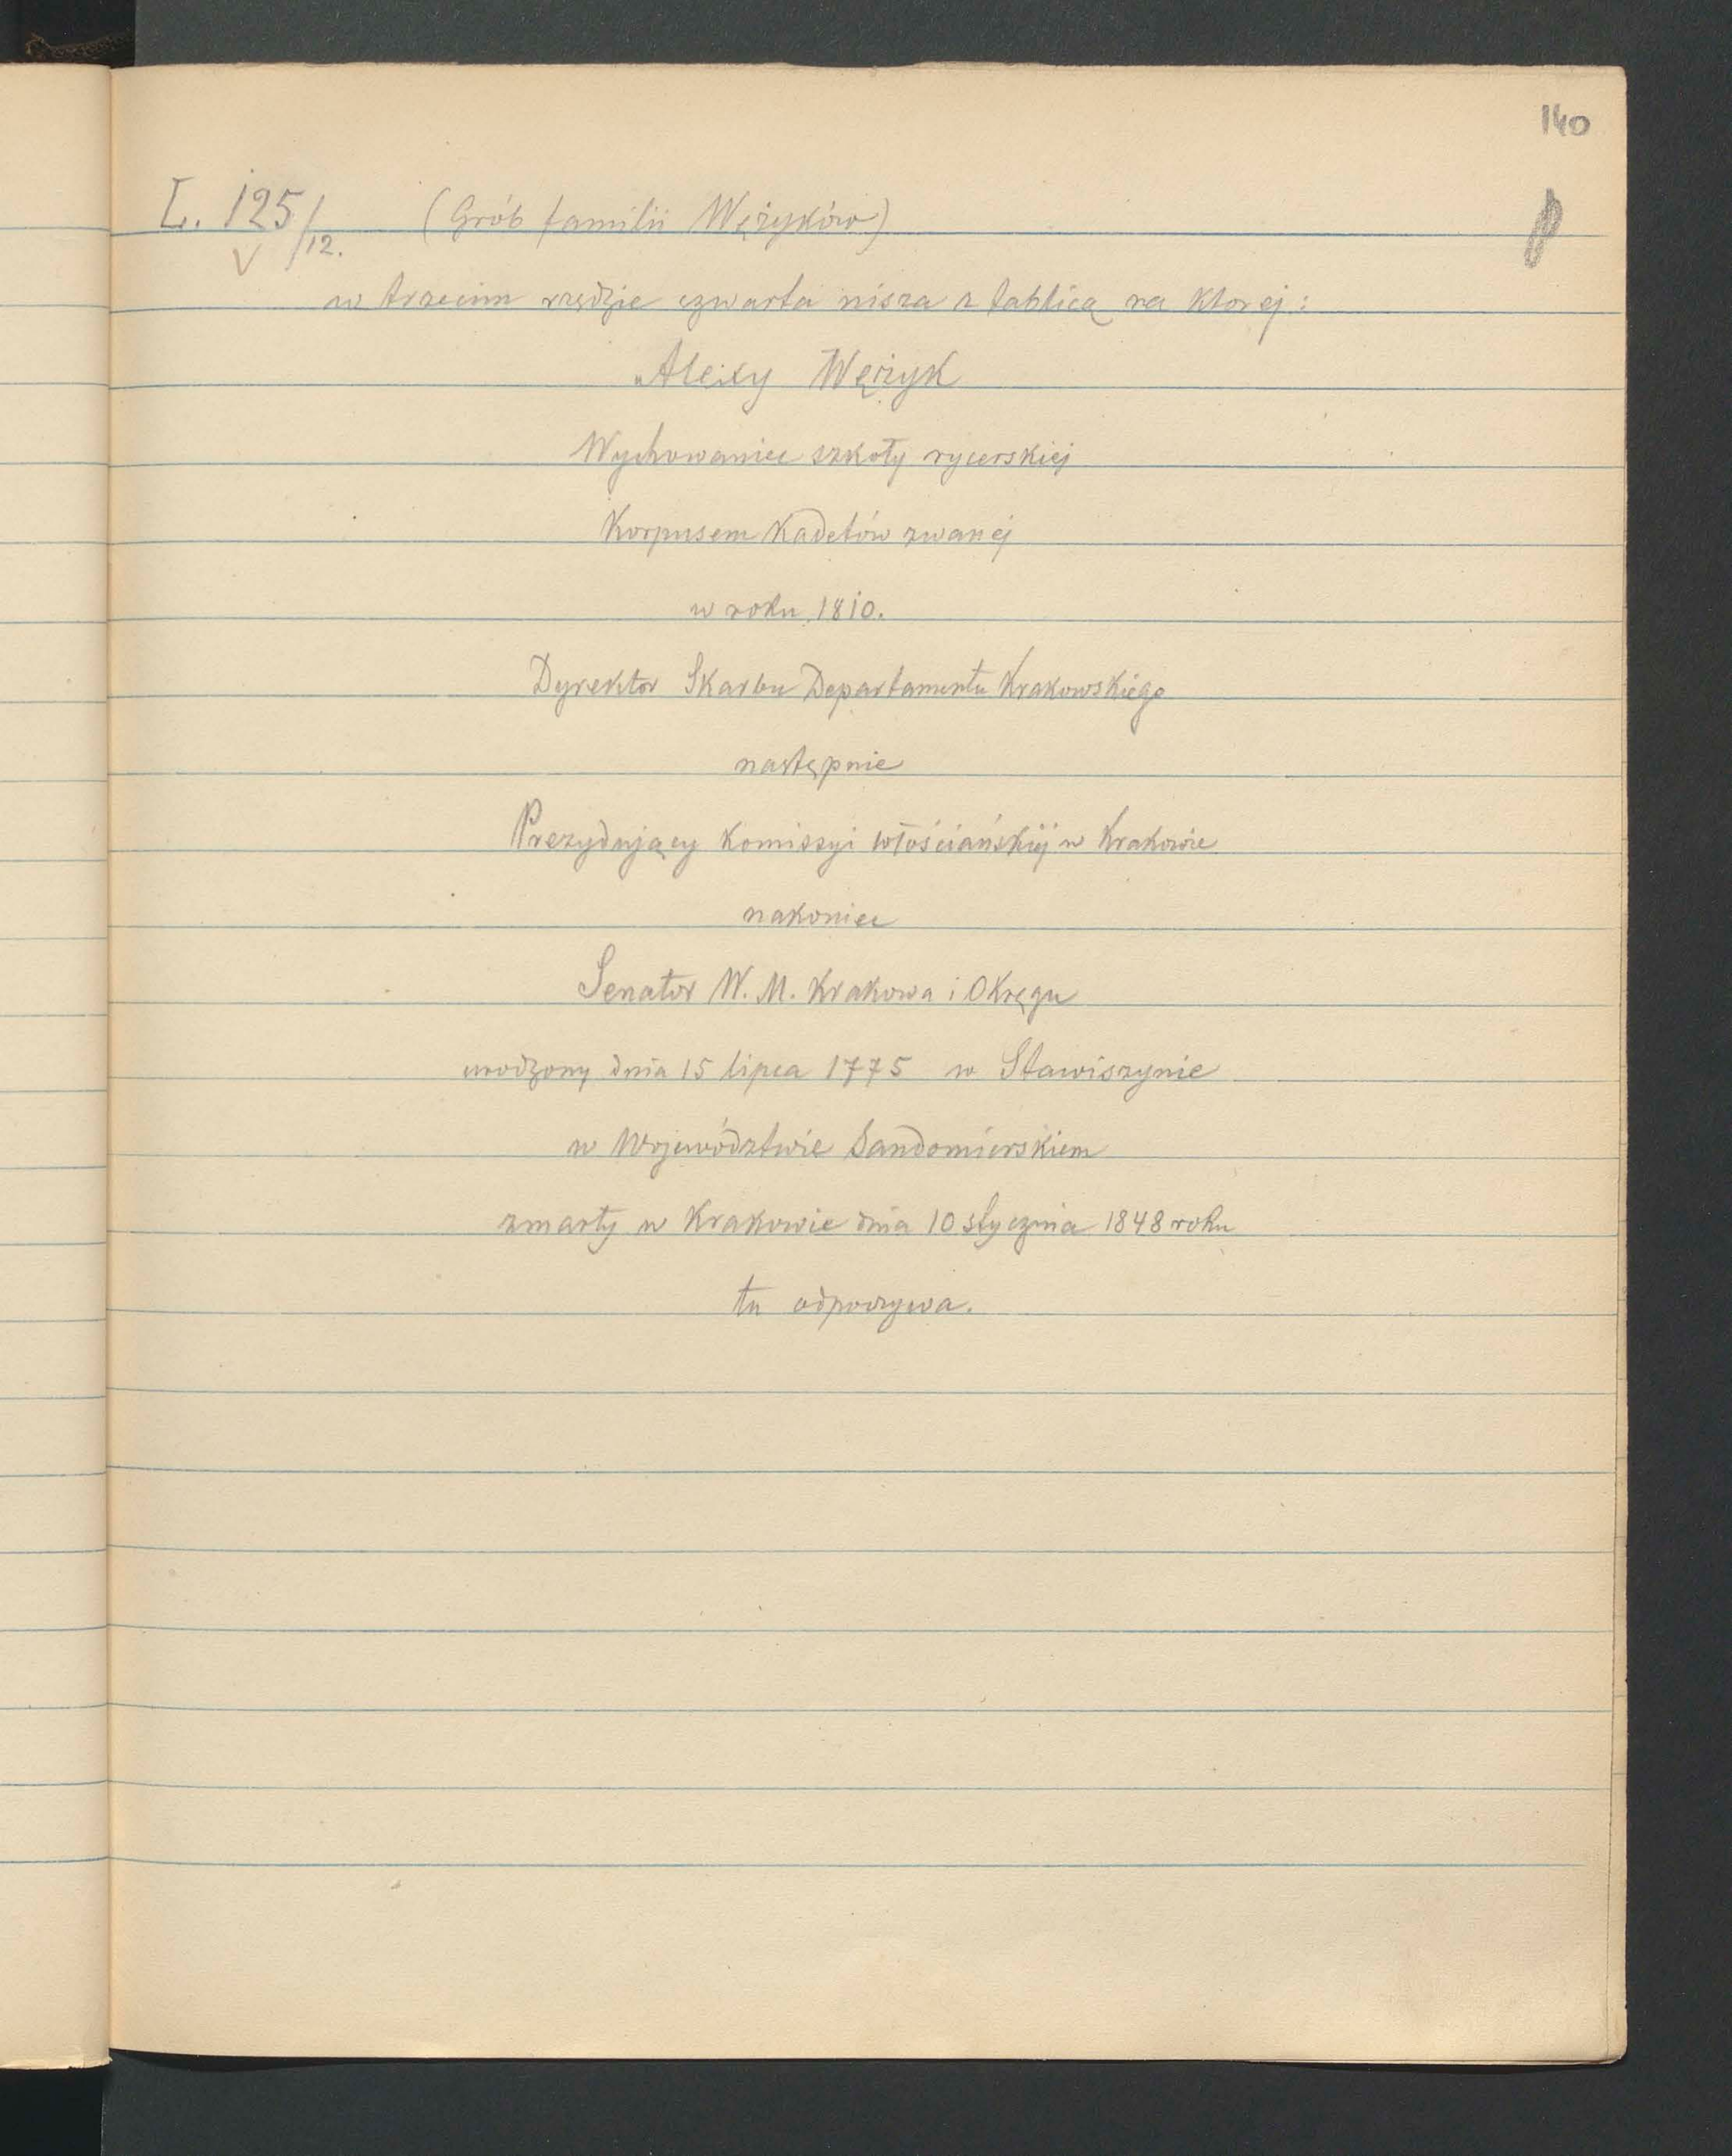 140
L. 125/12. (Grób familii Wężyków)
V
w trzecim rzędzie czwarta nisza z tablicą na ktorej:
„Alexy Wężyk
Wychowaniec szkoły rycerskiej
Korpusem Kadetów zwanéj
w roku 1810.
Dyrektor Skarbu Departamentu Krakowskiego
następnie
Prezydujący Komissyi włościańskiéj w Krakowie
nakoniec
Senator W. M. Krakowa i Okręgu
urodzony dnia 15 lipca 1775 w Stawiszynie
w Województwie Sandomierskiem
zmarły w Krakowie dnia 10 stycznia 1848 roku
tu odpoczywa.